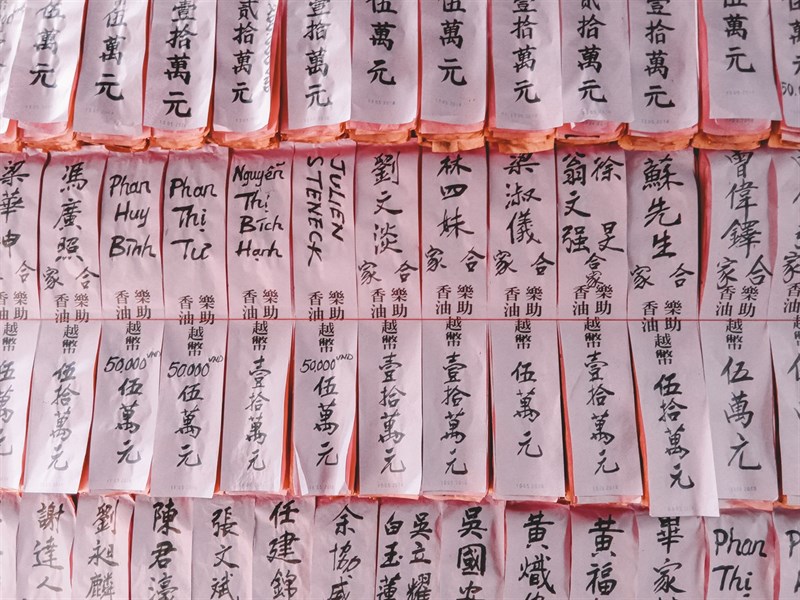 伍萬元
伍萬元
壹拾萬元
貳拾萬元
壹拾萬元
伍萬元
伍萬元
壹拾萬元
貳拾萬元
壹拾萬元
伍萬元
梁華申
合
樂助
香油
伍萬元
馮廣照
合家
樂助
香油
越幣
伍拾萬元
Phan
Huy
Bỉnh
樂助
香油
越幣
50,000 VND
伍萬元
Phan
Thị
Tư
樂助
香油
越幣
50,000 VND
伍萬元
Nguyễn
Thị
Bích
Hạnh
樂助
香油
越幣
壹拾萬元
JULIEN
STENECK
樂助
香油
越幣
50,000 VND
伍萬元
劉文淡
合家
樂助
香油
越幣
壹拾萬元
林四妹
合家
樂助
香油
越幣
壹拾萬元
梁淑儀
合家
樂助
香油
越幣
伍萬元
徐旻
翁文強
合家
樂助
香油
越幣
壹拾萬元
蘇先生
合家
樂助
香油
越幣
伍拾萬元
曾偉鐸
合家
樂助
香油
越幣
伍萬元
謝達人
劉昶麟
陳君濠
張文斌
任建錦
余協威
吳立耀
白玉蓮
吳國安
黃熾
黃福
畢家
Phan
Thị